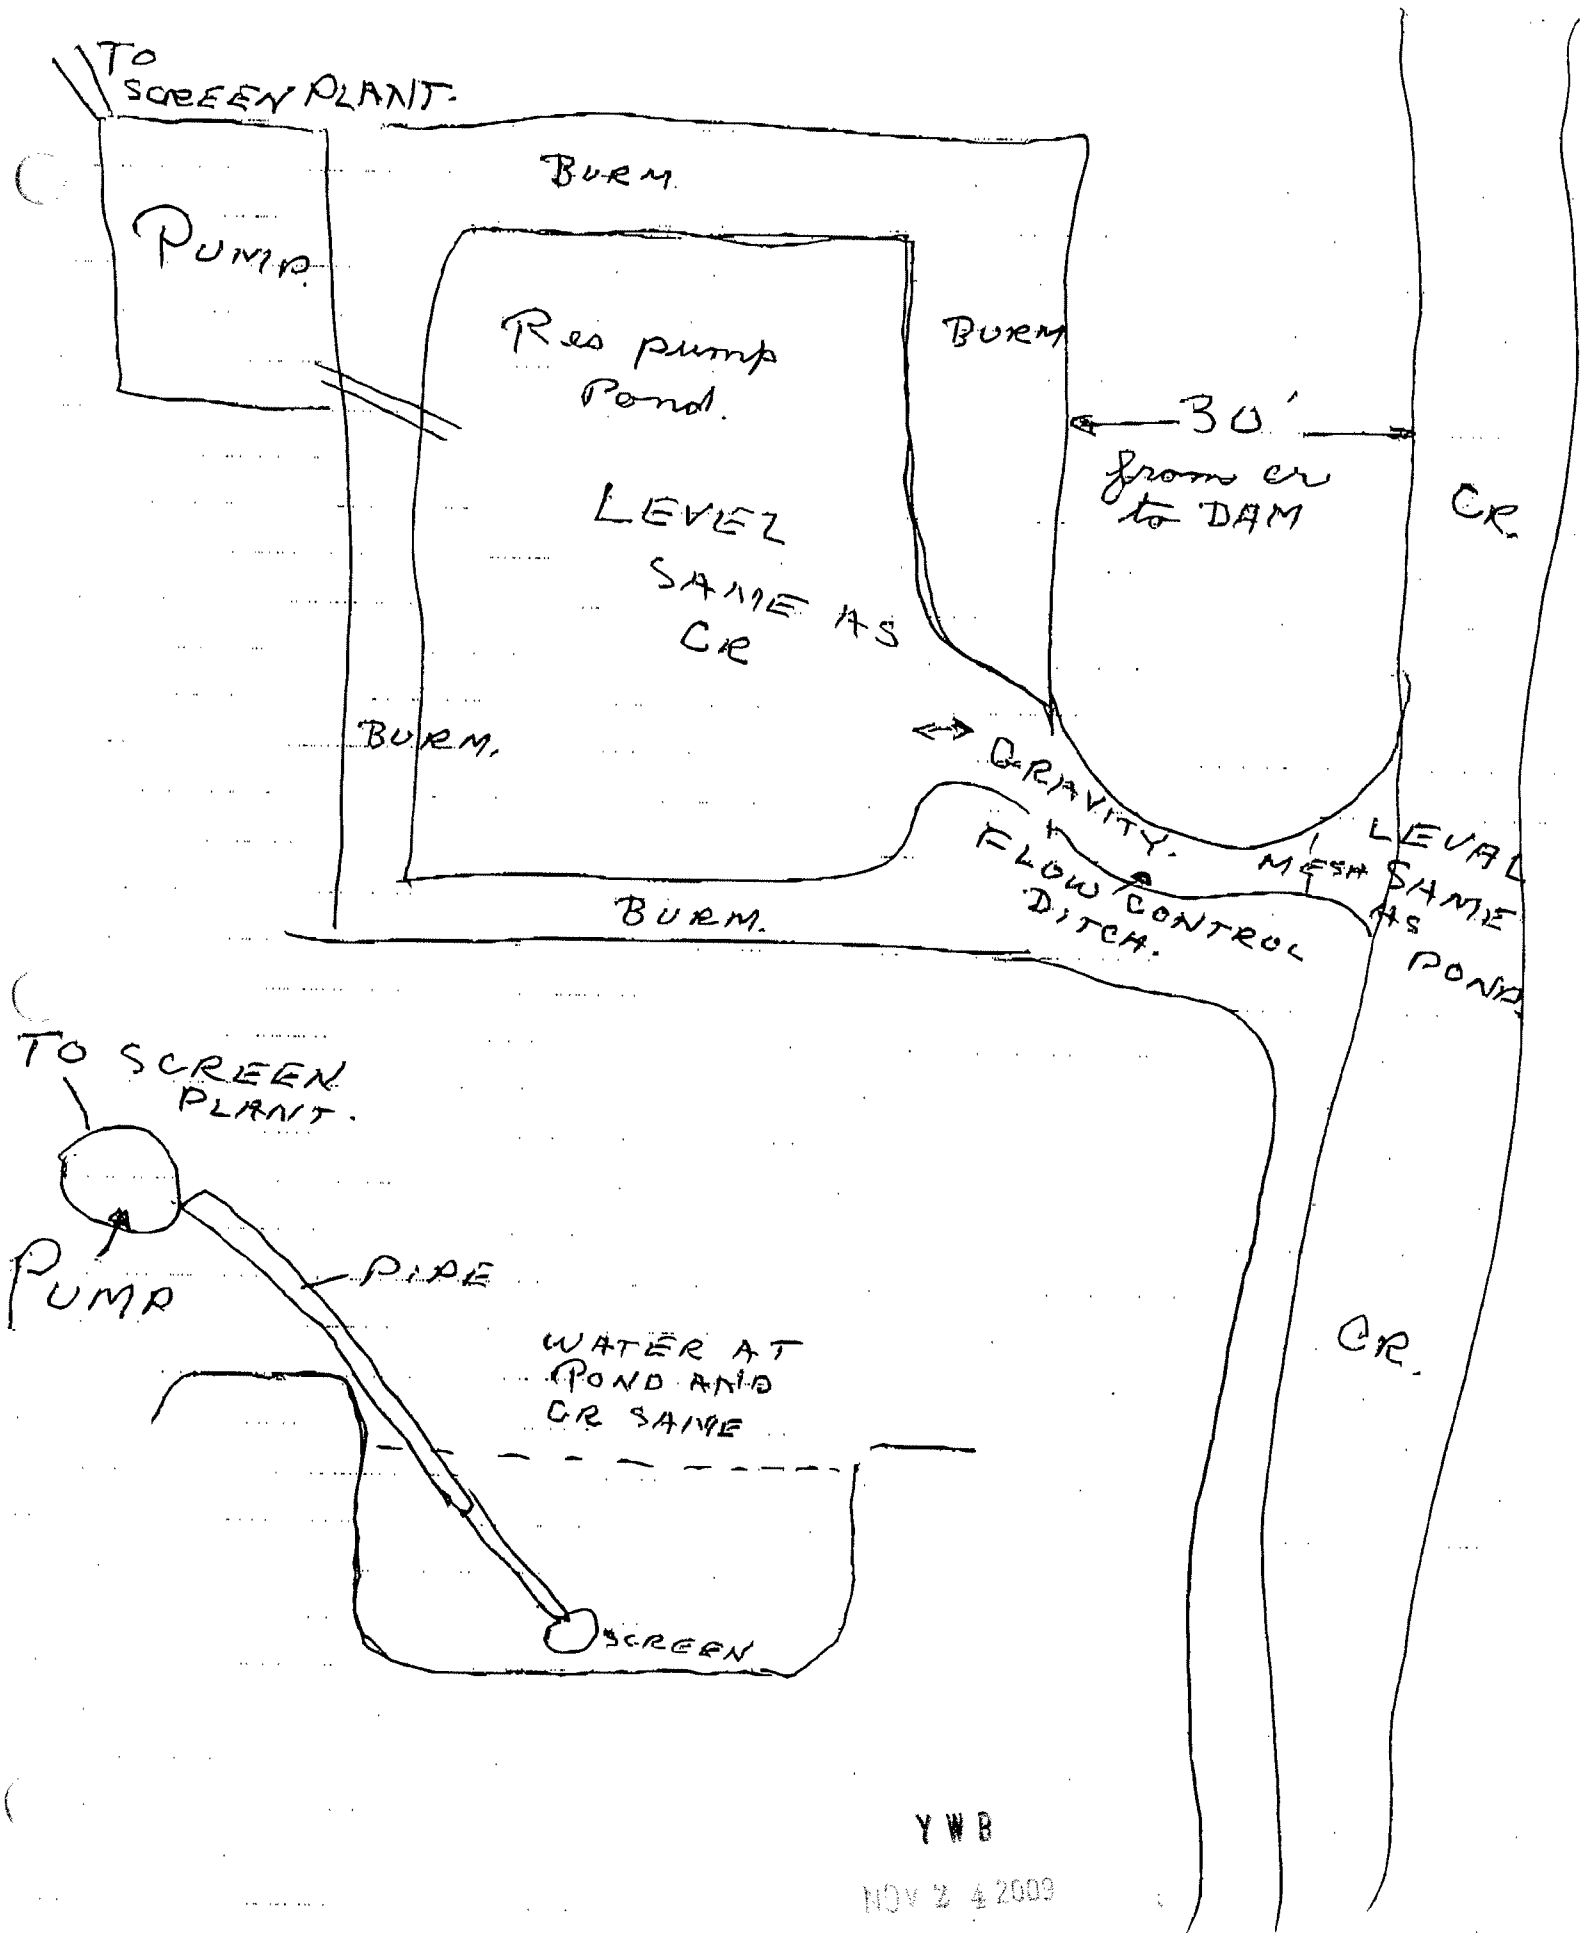 TO
SCREEN PLANT.
BURM.
PUMP.
Res pump
Pond.
BURM
30'
from cr
to DAM
CR.
LEVEL
SAME AS
CR
BURM.
GRAVITY.
FLOW CONTROL
DITCH.
MESH
LEVAL
SAME
AS
POND.
BURM.
TO SCREEN
PLANT.
PUMP
PIPE
WATER AT
POND AND
CR SAME
SCREEN
CR.
YWB
NOV 24 2009